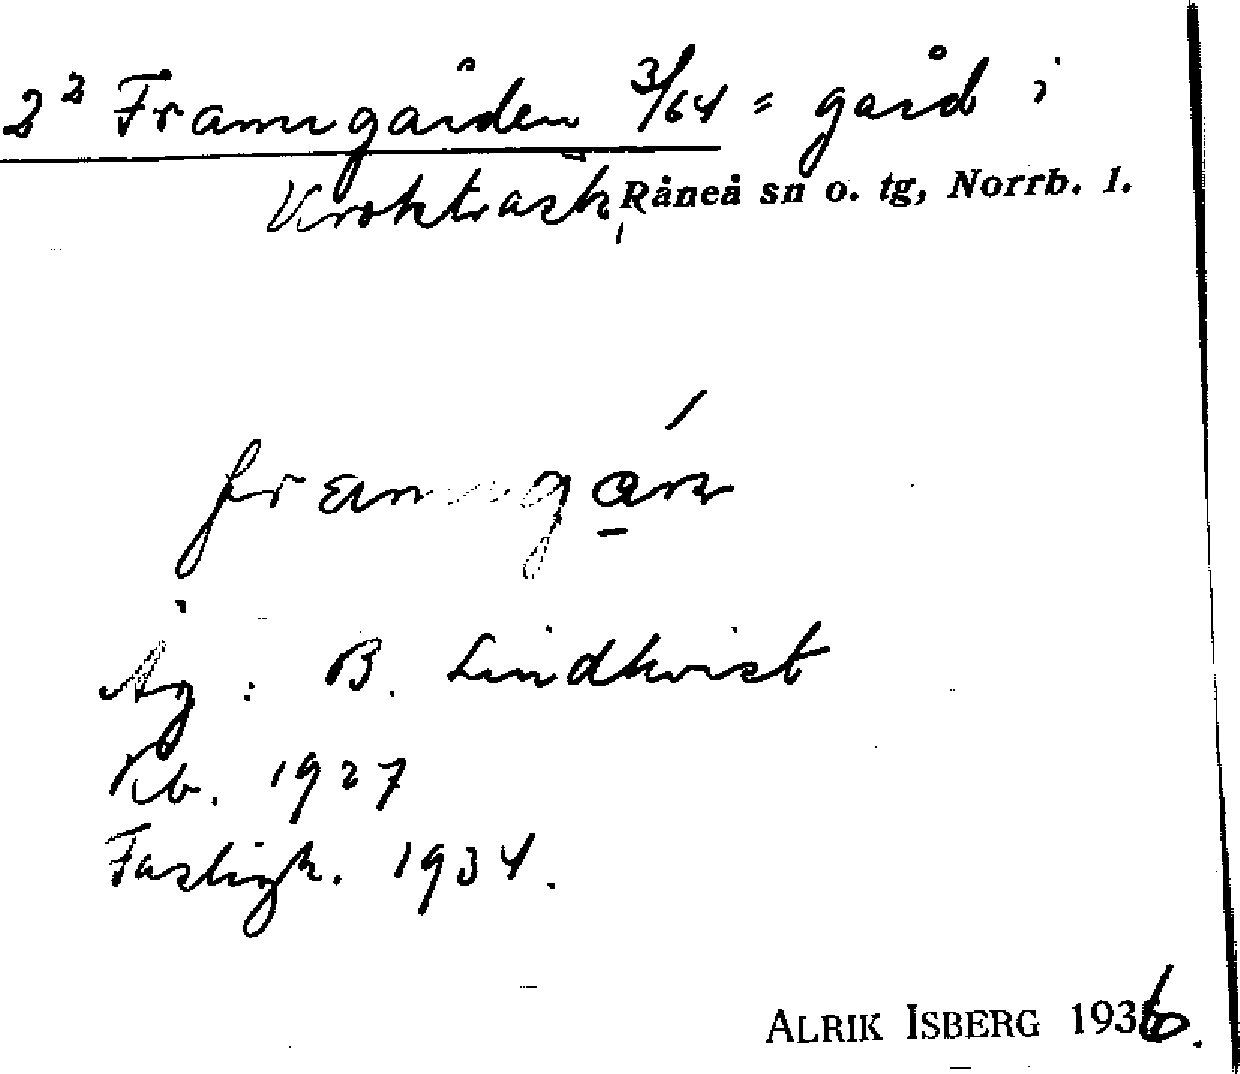 2² Framgården 3/64 = gård i
Kroktrask, Råneå sn o. tg, Norrb. l.
Äg: B. Lindkvist
Kb. 1927
Fastigh. 1934.
ALRIK ISBERG 1936.